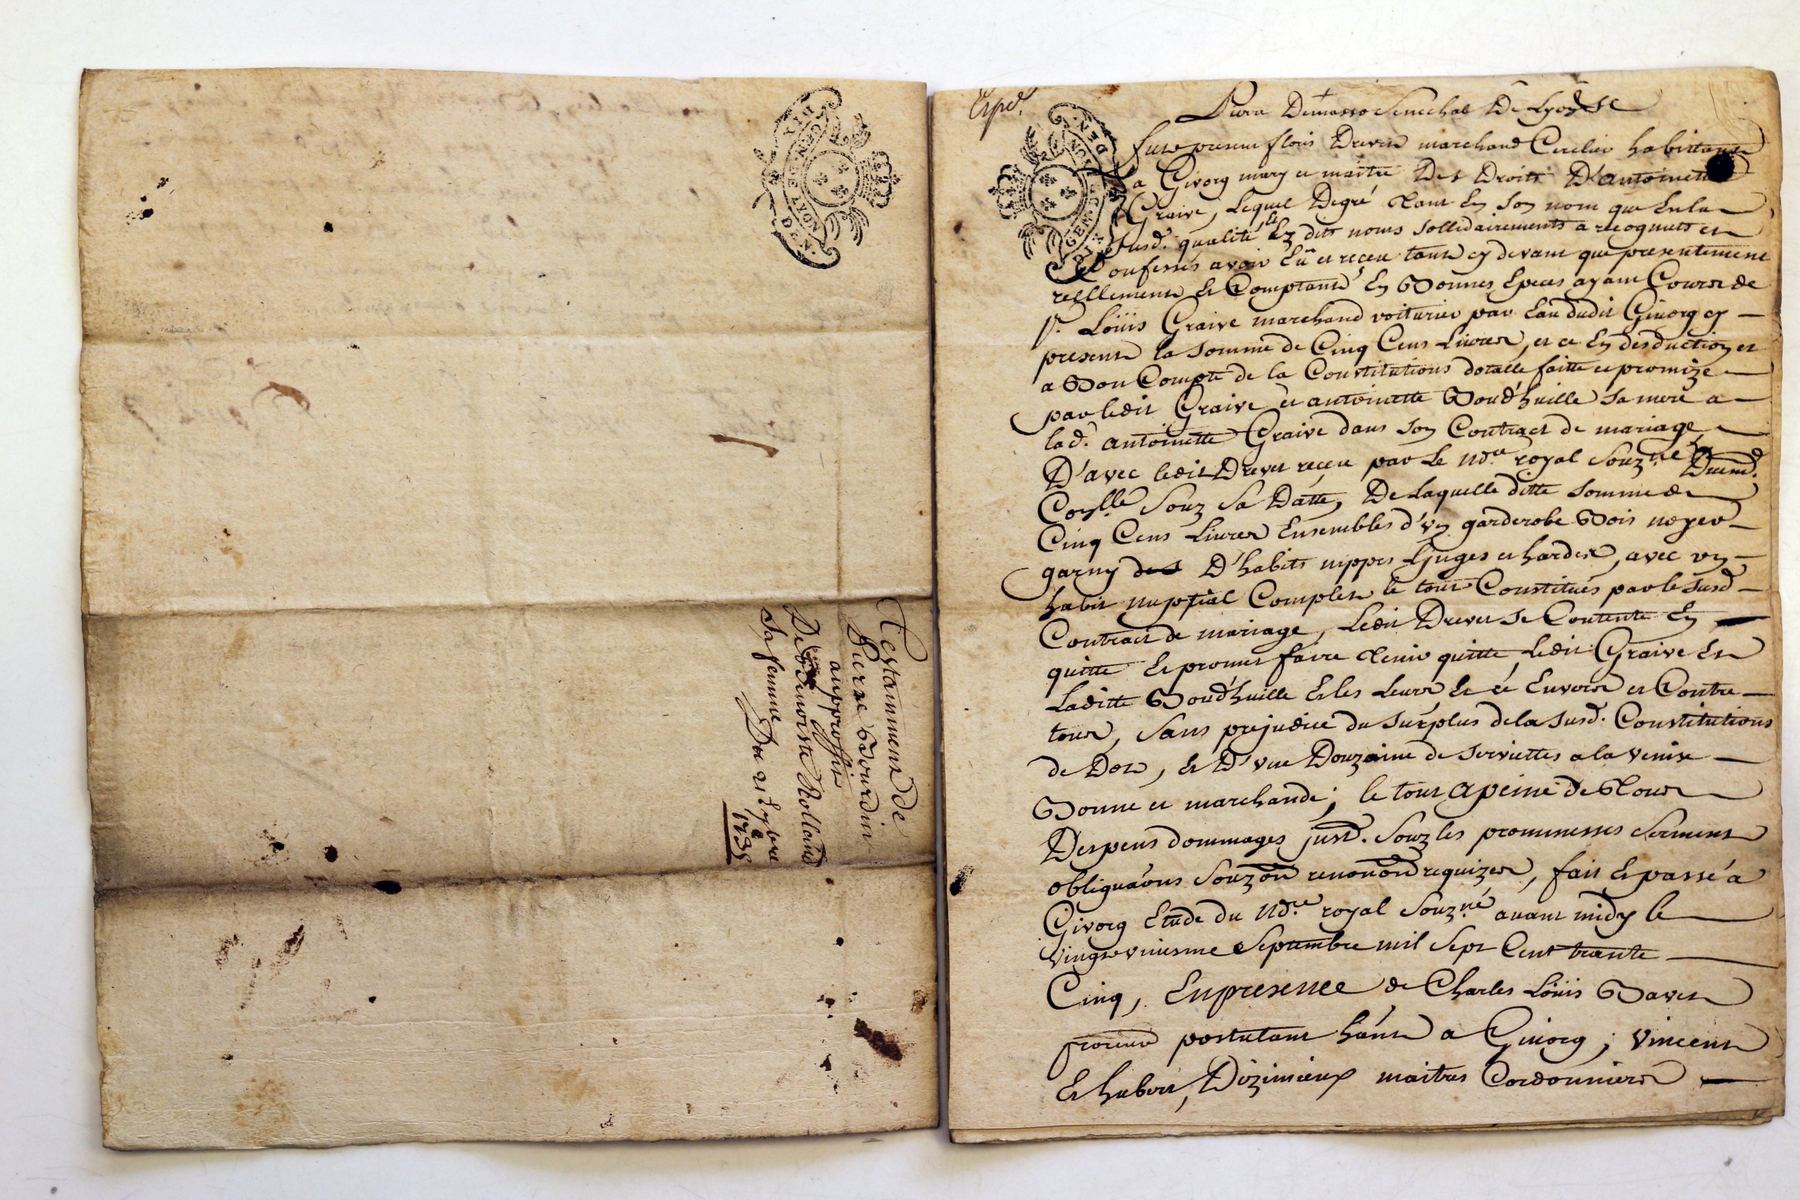 Testamment de
Pierre Bourdin
auproffit
De Benoiste Rolland
sa femme
Du 21e 7bre
1735
GEN. DE LYON
DIX DEN.
Exped.
Senechal De Lyon
fut present flori Drevet marchand Cerclier habittant
a Givorg mary et maitre Des Droits D'antoinette
Graive, Lequel Degré tant En son nom que En la
susd. qualité, Et Ez dits noms sollidairements a recognuts et
Confesses avoir Eü et reçeu tant cy devant que presentement
reellement Et Comptant En Bonnes Especes ayant Cours de
Sr. Loüis Graive marchand voiturier par Eau dudit Givorg cy
present la somme de Cinq Cens Livres, et ce En desduction et
a Bon Compte de la Constitutions dotalle faitte et promize
par ledit Graive et antoinette Boud'huille sa mere a
lad. antoinette Graive dans son Contract de mariage
D'avec ledit Drevet reçeu par Le nore royal Souzne
Souz sa Datte, De laquelle ditte somme de
Cinq Cens Livres Ensembles d'vn garderobe Bois noyer
garny des D'habits nippes Linges et hardes, avec vn
habit nuptial Complet le tout Constitués par le susd
Contract de mariage, Ledit Drevet se Contente En
quitte Et promet faire tenir quitte, Ledit Graive Et
Laditte Boud'huille Et les Leurs Et cé Envers et Contre
tous, Sans prejudice du surplus de la susd. Constitutions
de Dot, Et D'vne Douzaine de serviettes a la venise
Bonne et marchande; le tout a peine de tous
Despens dommages just. Souz les promnesses Serment
obligaons Souzon renonon requizes, fait Et passé a
Givorg Etude du nore royal Souzné avant midy le
Vingt vniesme Septembre mil Sept Cent trante
Cinq, En presence de Charles Loüis Bavet
postulant ha'nt a Givorg; Vincent
Et hubert, Dizimieux maitres Cordonniers